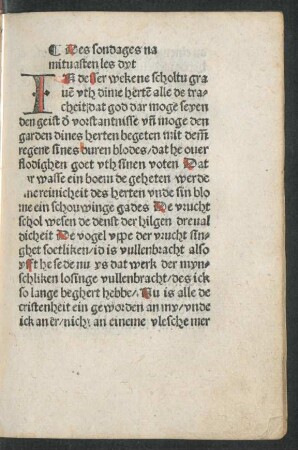 ¶ Des sondages na
mituasten les dyt
IN desser wekene scholtu gra
uē vth dime hertē alle de tra
cheit/dat god dar moge seyen
den geist đ vorstantnisse vn̄ moge den
garden dines herten begeten mit dem̄
regene sines duren blodes/dat he ouer
flodighen goet vth sinen voten Dat
r wasse ein boem de geheten werde
ne reinicheit des herten vnde sin blo
me ein schouwinge gades De vrucht
schol wesen de denst der hilgen dreual
dicheit De vogel vppe der vrucht sin/
ghet soetliken/id is vullenbracht also
yfft he sede nu ys dat werk der myn/
schliken losinge vullenbracht/des ick
so lange beghert hebbe/. Nu is alle de
cristenheit ein geworden an my/vnde
ick an er/nicht an eineme vlesche mer